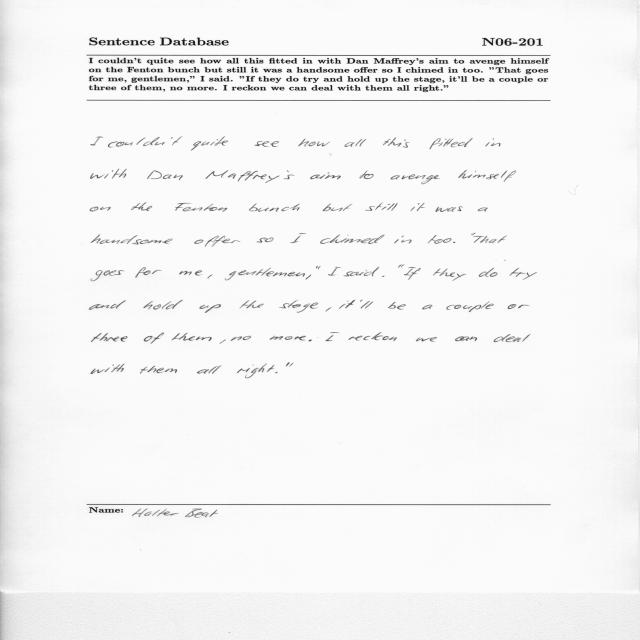 Sentence Database N06-201
I couldn't quite see how all this fitted in with Dan Maffrey's aim to avenge himself
on the Fenton bunch but still it was a handsome offer so I chimed in too. "That goes
for me, gentlemen," I said. "If they do try and hold up the stage, it'll be a couple or
three of them, no more. I reckon we can deal with them all right."
I couldn't quite see how all this fitted in
with Dan Maffrey's aim to avenge himself
on the Fenton bunch but still it was a
handsome offer so I chimed in too. "That
goes for me, gentlemen," I said. "If they do try
and hold up the stage, it'll be a couple or
three of them, no more. I reckon we can deal
with them all right."
Name: Halter Beat